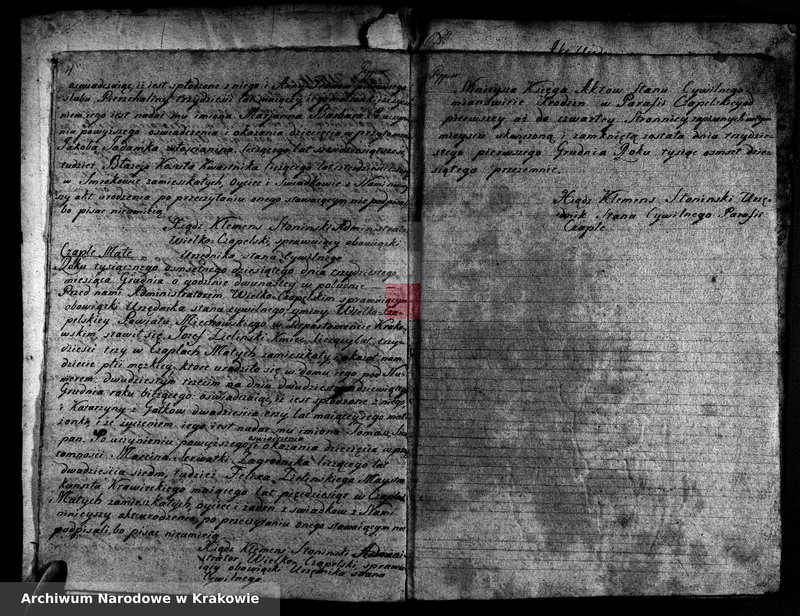 oswiadczaiąc iż iest spłodzone z niego i Anny
slubu Pierzchaliny trzydzieści lat maiącey
niem iego iest nadać mu imiona Maryanna Barbara Po uczy
niu powyższego oswiadczenia i okazania dziecięcia w przytom
Jakoba Sadamka włościanina liczącego lat
tudzież Błażeia Kaszuta Kwartnika liczącego lat
w zamieszkałych, Oyciec i Swiadkowie z Nami niniey
szy akt urodzenia po przeczytaniu onego stawaiącym nie podpisali
bo pisać nieumieią
Xiądz Klemens Stoninski Administrator
Wielko Czapelski, sprawuiący obowiązki
Urzędnika stanu Cywilnego
Czaple Małe
Roku tysiącznego osmsetnego dziesiątego dnia trzydziestego
miesiąca Grudnia o godzinie dwunastey w południe
Przed nami Administratorem Wielko Czapelskim sprawuiącym
obowiązki Urzędnika stanu cywilnego gminy Wielko Cza
pelskiey Powiatu Miechowskiego w Departamencie Krako
wskim, stawił się Jozef Zielinski Kmieć liczący lat trzy
dzieści trzy w Czaplach Małych zamieszkały i okazał nam
dziecie płci męzkiey, ktore urodziło się w domu iego pod Nu
merem dwudziestym trzecim na dniu dwudziestym dziewiątym
Grudnia roku bieżącego oswiadczaiąc iż iest spłodzone z niego
i Katarzyny z Gałkow dwadzieścia trzy lat maiącey iego mał
żonki i że życzeniem iego iest nadać mu imiona Tomasz Szcze
pan. Po uczynieniu powyższego oswiadczenia i okazania dziecięcia w przy
tomności Marcina Serwatki Zagrodnika liczącego lat
dwadzieścia siedm, tudzież Felixa Zielinskiego Maystra
kunsztu Krawieckiego maiącego lat pięćdziesiąt w Czaplach
Małych zamieszkałych, Oyciec i żaden z swiadkow z Nami
ninieyszy akt urodzenia, po przeczytaniu onego stawaiącym nie
podpisali, bo pisać nieumieią
Xiądz Klemens Stoninski Admini
strator Wielko Czapelski, sprawu
iący obowiązki Urzędnika stanu
Cywilnego
Ninieysza Księga Aktow Stanu Cywilnego
mianowicie Urodzin w Parafii Czapelskiey od
pierwszey aż do czwartey Stronnicy zapisanych w tym
mieyscu ukończoną i zamkniętą została dnia trzydzie
stego pierwszego Grudnia Roku tysiąc osmset dzie
siątego przezemnie.
Xiądz Klemens Stoninski Urzę
dnik Stanu Cywilnego Parafii
Czaple
Archiwum Narodowe w Krakowie